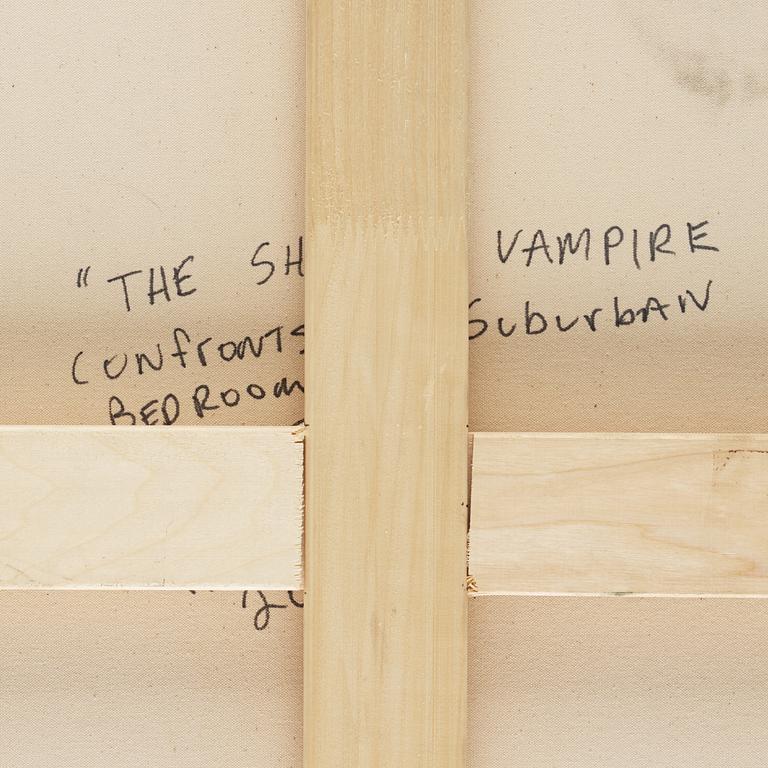 "THE SH VAMPIRE
CONfrONTS SuburbAN
BEDROOM